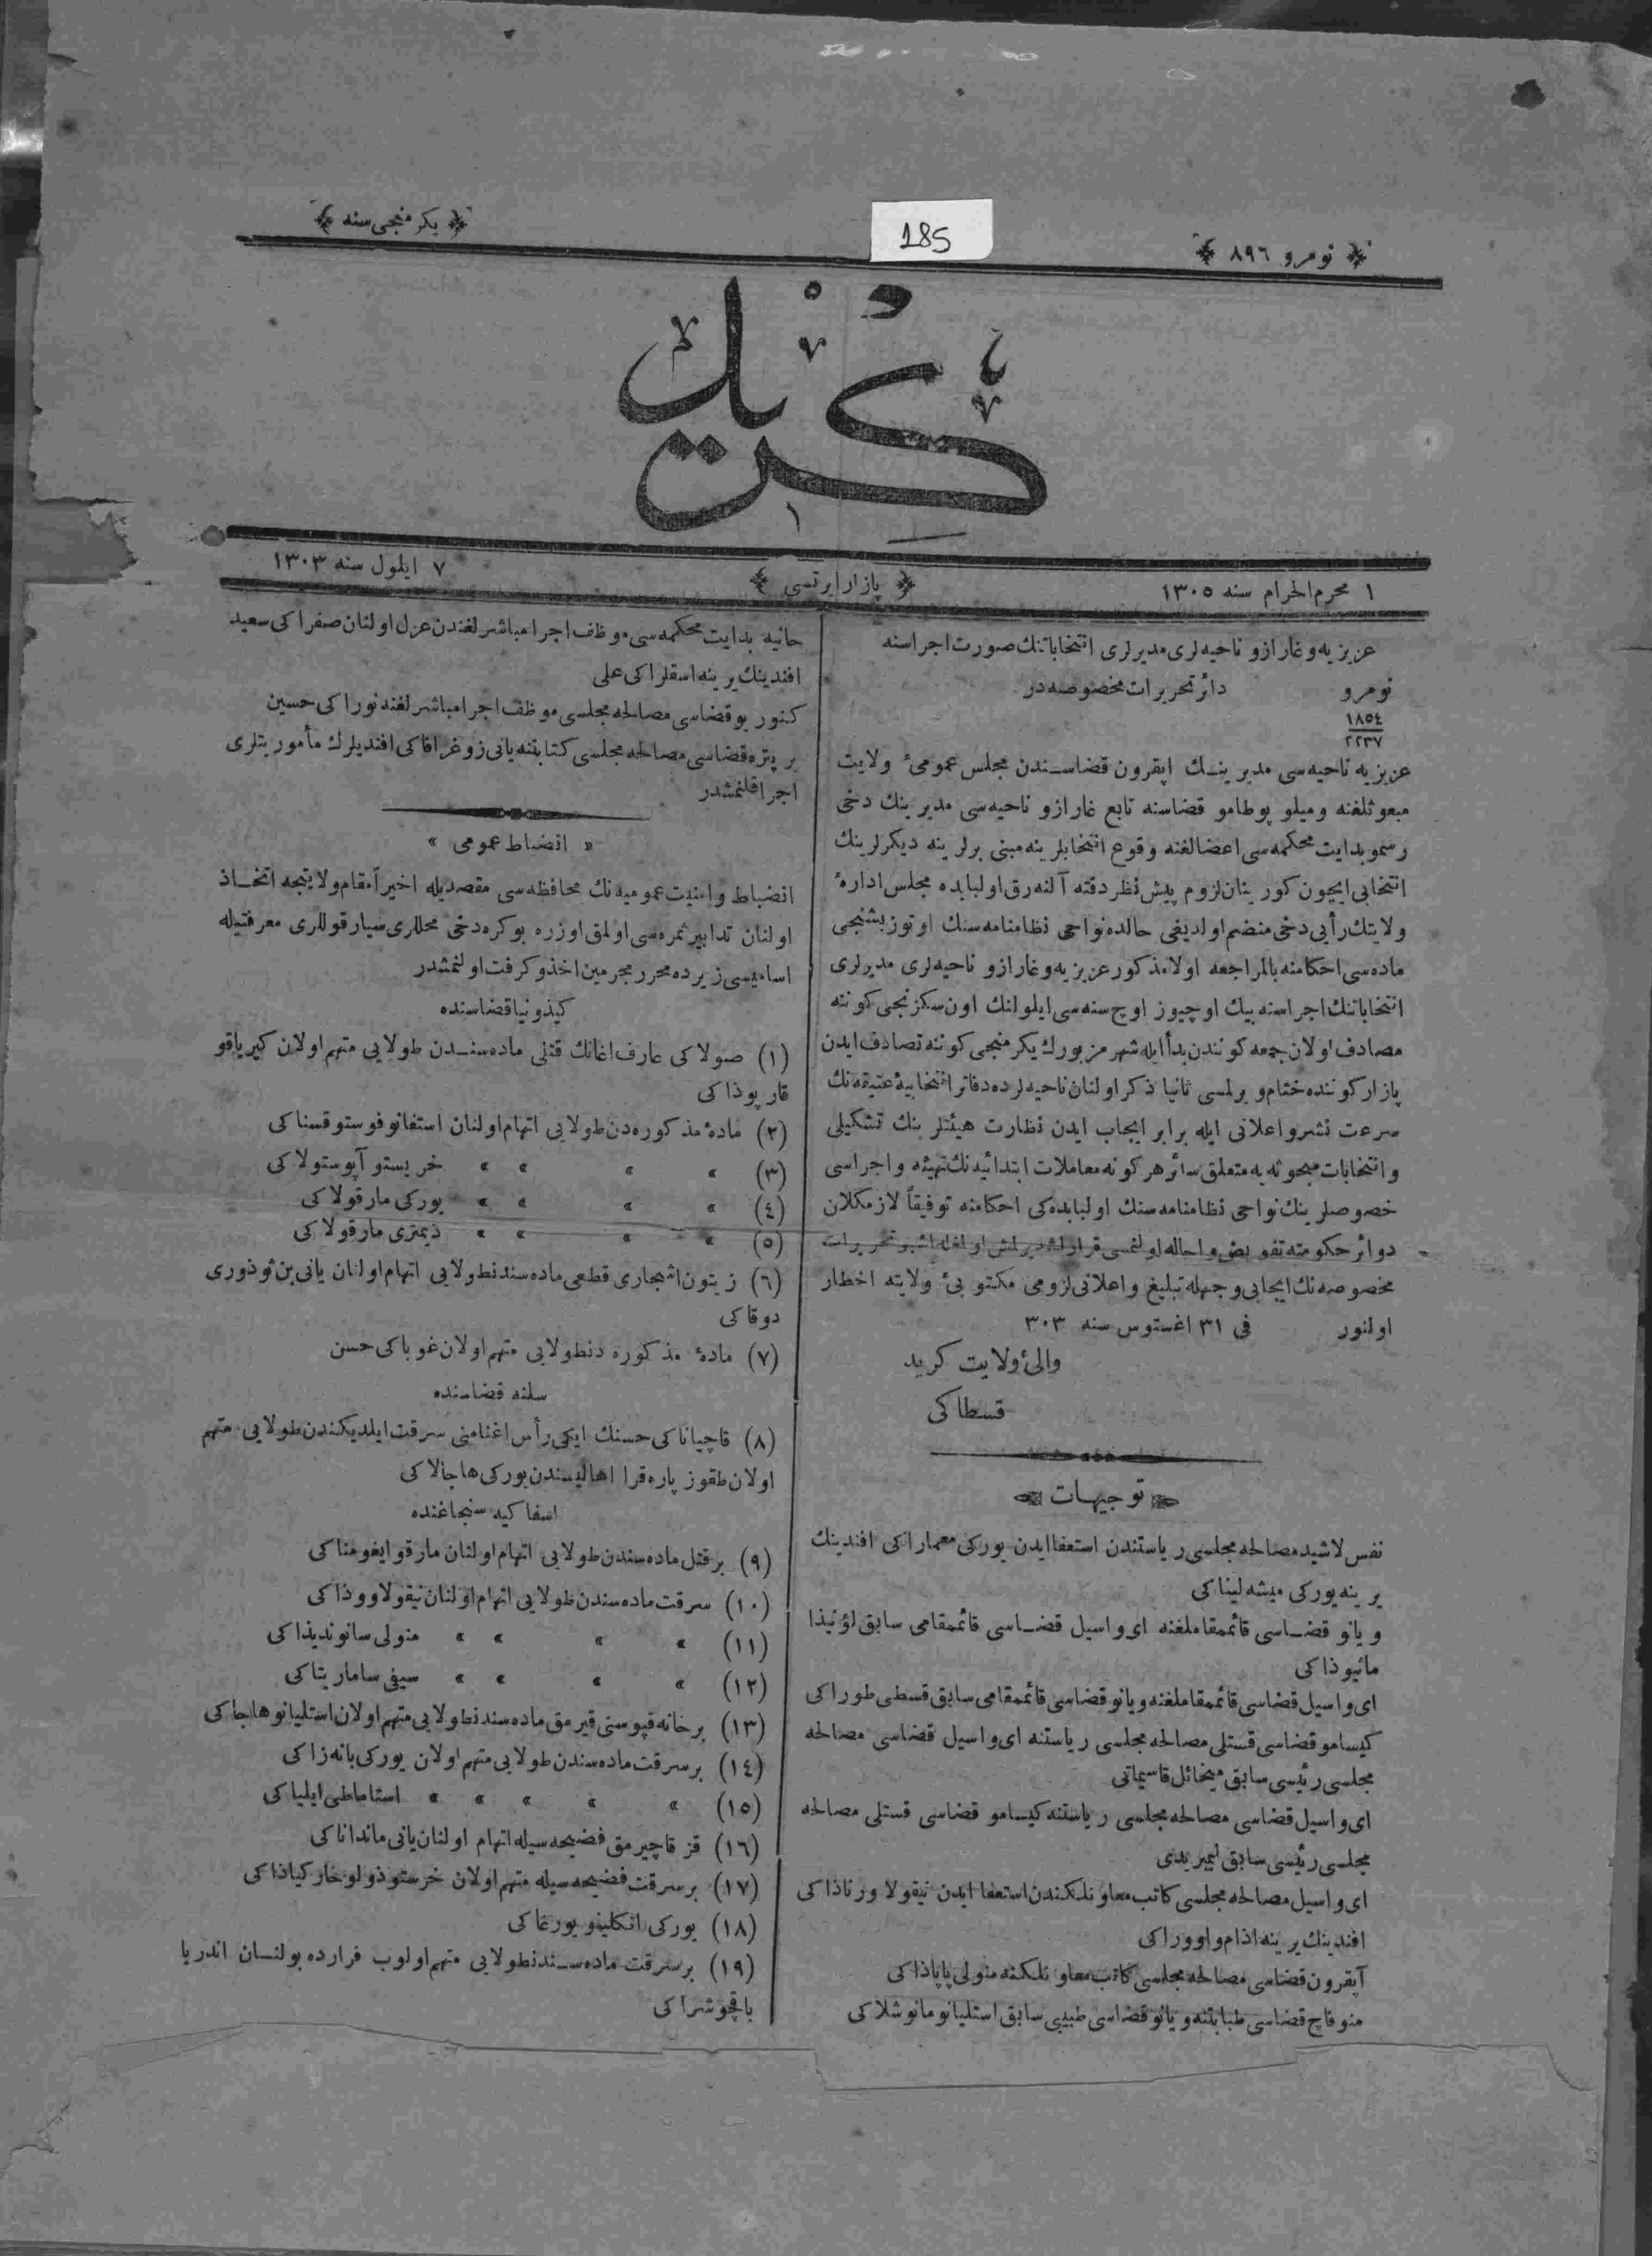 نومرو ٨٩٦
185
يكرمنجى سنه
كريد
١ محرم الحرام سنه ١٣٠٥
پازار ايرتسى
٧ ايلول سنه ١٣٠٣
عزيزيه وغارازو ناحيه لرى مديرلرى انتخاباتنك صورت اجراسنه
نومرو دائر تحريرات مخصوصه در
١٨٥٤
٢٢٣٧
عزيزيه ناحيه سى مديرينك اپقرون قضاسندن مجلس عمومىٔ ولايت
مبعوثلغنه وميلو پوطامو قضاسنه تابع غارازو ناحيه سى مديرينك دخى
رسمو بدايت محكمه سى اعضالغنه وقوع انتخابلرينه مبنى برلرينه ديكرلرينك
انتخابى ايچون كورينان لزوم پيش نظر دقته آلنه رق اولبابده مجلس ادارهٔ
ولايتك رأيى دخى منضم اولديغى حالده نواحى نظامنامه سنك اوتوز بشنجى
ماده سى احكامنه بالمراجعه اولا مذكور عزيزيه وغارازو ناحيه لرى مديرلرى
انتخاباتنك اجراسنه بيك اوچيوز اوچ سنه سى ايلولنك اون سكزنجى كوننه
مصادف اولان جمعه كونندن بدأ ايله شهر مزبورك يكرمنجى كوننه تصادف ايدن
پازار كوننده ختام ويرلمسى ثانيا ذكر اولنان ناحيه لرده دفاتر انتخابيهٔ عتيقه نك
سرعت نشر و اعلانى ايله برابر ايجاب ايدن نظارت هيئتلرينك تشكيلى
وانتخابات مبحوثه يه متعلق سائر هر كونه معاملات ابتدائيه نك تهيئه واجراسى
خصوصلرينك نواحى نظامنامه سنك اولبابده كى احكامنه توفيقاً لازمكلان
دوائر حكومته تفويض و احاله اولنمسى قرارلشديرلمش اولغله اشبو تحريرات
مخصوصه نك ايجابى وجهله تبليغ واعلانى لزومى مكتوبىٔ ولايته اخطار
اولنور فى ٣١ اغستوس سنه ٣٠٣
والىٔ ولايت كريد
قسطاكى
توجيهات
نفس لاشيد مصالحه مجلسى رياستندن استعفا ايدن يوركى معماراكى افندينك
يرينه يوركى ميشه ليناكى
ويانو قضاسى قائممقاملغنه اى واسيل قضاسى قائممقامى سابق لؤنيذا
مانيوذاكى
اى واسيل قضاسى قائممقاملغنه ويانو قضاسى قائممقامى سابق قسطى طوراكى
كيسامو قضاسى قستلى مصالحه مجلسى رياستنه اى واسيل قضاسى مصالحه
مجلسى رئيسى سابق ميخائل قاسيماتى
اى واسيل قضاسى مصالحه مجلسى رياستنه كيسامو قضاسى قستلى مصالحه
مجلسى رئيسى سابق ليميريدى
اى واسيل مصالحه مجلسى كاتب معاونلكندن استعفا ايدن نيقولا ورناذاكى
افندينك يرينه اذام واووراكى
آپقرون قضاسى مصالحه مجلسى كاتب معاونلكنه منولى پاپاذاكى
منوفاچ قضاسى طبابتنه ويانو قضاسى طبيبى سابق استليانو مانوشلاكى
حانيه بدايت محكمه سى موظف اجرا مباشرلغندن عزل اولنان صفراكى سعيد
افندينك يرينه اسقلراكى على
كنوريو قضاسى مصالحه مجلسى موظف اجرا مباشرلغنه نوراكى حسين
يرپتره قضاسى مصالحه مجلسى كتابتنه يانى زوغرافاكى افنديلرك مأموريتلرى
اجرا قلنمشدر
« انضباط عمومى »
انضباط وامنيت عموميه نك محافظه سى مقصديله اخيراً مقام ولايتجه اتخاذ
اولنان تدابير ثمره سى اولمق اوزره بوكره دخى محللرى سيار قوللرى معرفتيله
اساميسى زيرده محرر مجرمين اخذ وكرفت اولنمشدر
كيذونيا قضاسنده
(١) صولاكى عارف اغانك قتلى ماده سندن طولايى متهم اولان كيرياقو
قاريوذاكى
(٢) مادهٔ مذكوره دن طولايى اتهام اولنان استفانو فوستوقسناكى
(٣) » » » » خريستو آپوستولاكى
(٤) » » » » يوركى مارقولاكى
(٥) » » » » ذيمترى مارقولاكى
(٦) زيتون اشجارى قطعى ماده سندنطولايى اتهام اولنان يانى بن ثوذورى
دوقاكى
(٧) مادهٔ مذكوره دنطولايى متهم اولان غوباكى حسن
سلنه قضاسنده
(٨) قاچياناكى حسنك ايكى رأس اغنامنى سرقت ايلديكندن طولايى متهم
اولان طقوز پاره قرا اهاليسندن يوركى هاجالاكى
اسفاكيه سنجاغنده
(٩) بر قتل ماده سندن طولايى اتهام اولنان مارقو ايغومناكى
(١٠) سرقت ماده سندن طولايى اتهام اولنان نيقولا وودذاكى
(١١) » » » » منولى سانونديذاكى
(١٢) » » » » سيفى ساماريتاكى
(١٣) بر خانه قپوسنى قيرمق ماده سندنطولايى متهم اولان استليانو هاجاكى
(١٤) بر سرقت ماده سندن طولايى متهم اولان يوركى بانه زاكى
(١٥) » » » » » استاماطى ايلياكى
(١٦) قز قاچيرمق فضيحه سيله اتهام اولنان يانى مانداناكى
(١٧) بر سرقت فضيحه سيله متهم اولان خرستوذولو خاركياذاكى
(١٨) يوركى انكلينو يورغاكى
(١٩) بر سرقت ماده سندنطولايى متهم اولوب فرارده بولنان اندريا
باقچوشراكى